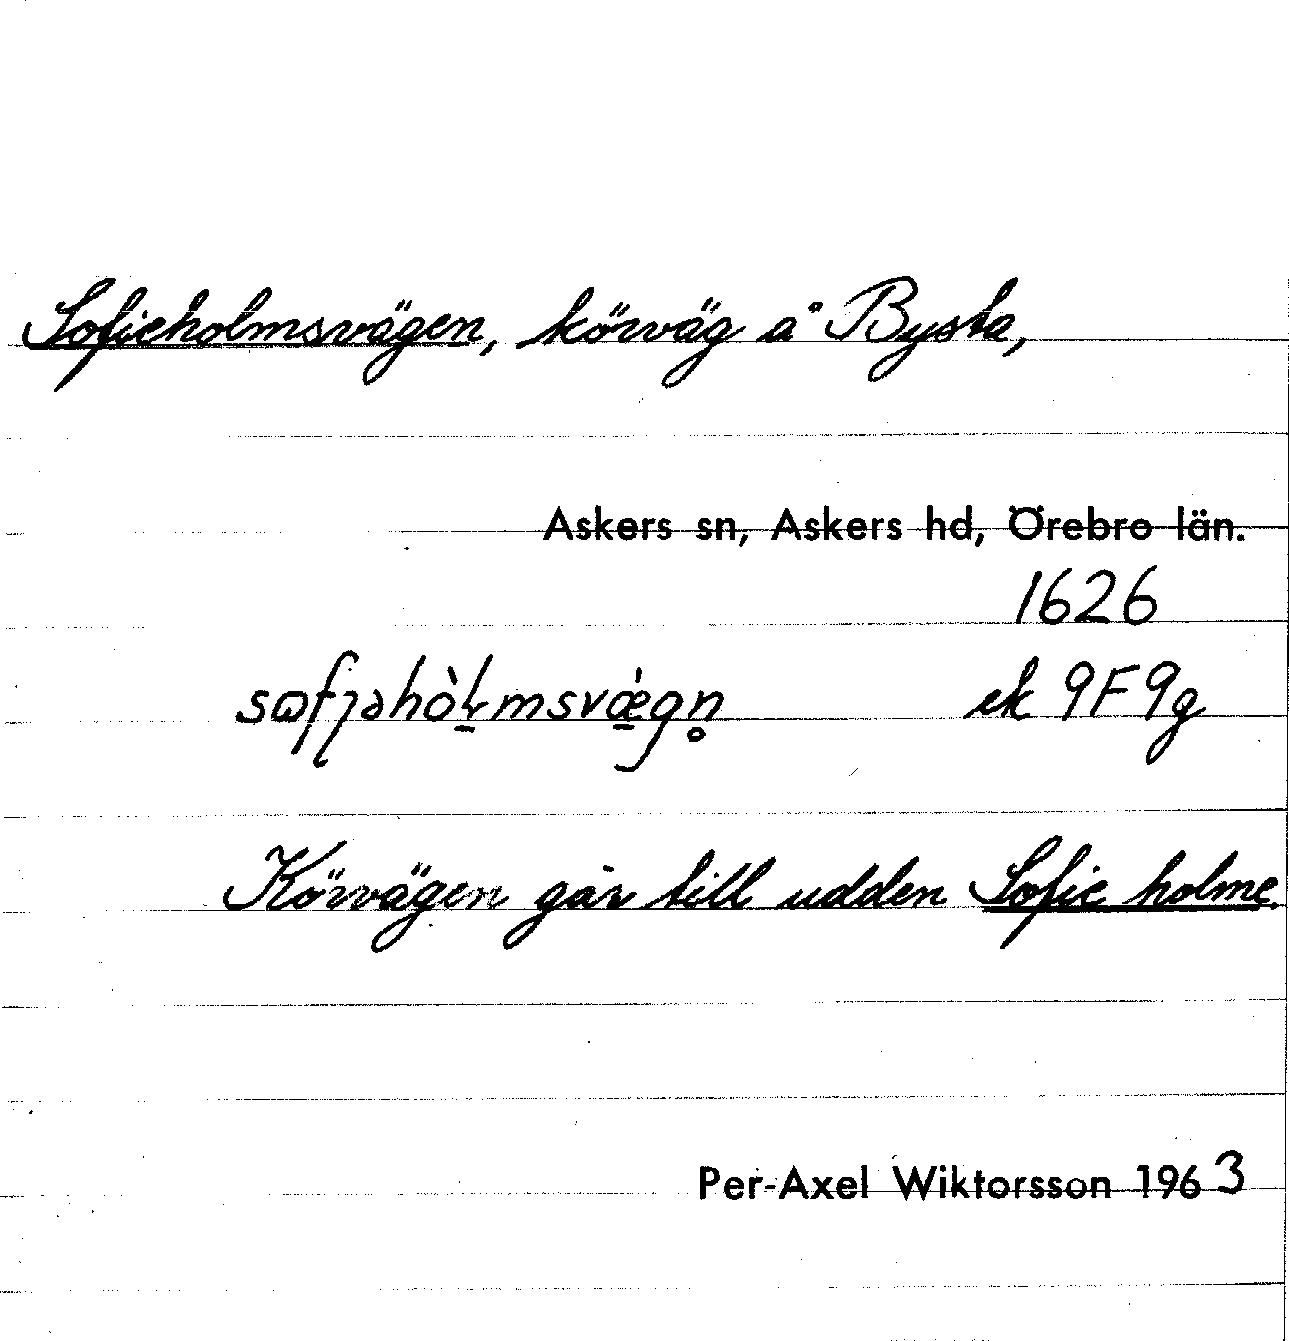 Sofieholmsvägen, körväg å Bysta,
Askers sn, Askers hd, Örebro län.
1626
ek 9F9g
Körvägen går till udden Sofie holme.
Per-Axel Wiktorsson 1963